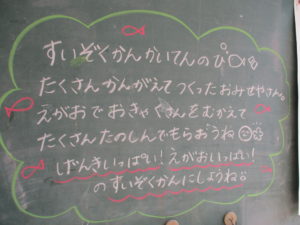 すいぞくかんかいてんのひ
たくさんかんがえてつくったおみせやさん。
えがおでおきゃくさんをむかえて
たくさんたのしんでもらおうね
げんきいっぱい!えがおいっぱい!
のすいぞくかんにしようね。